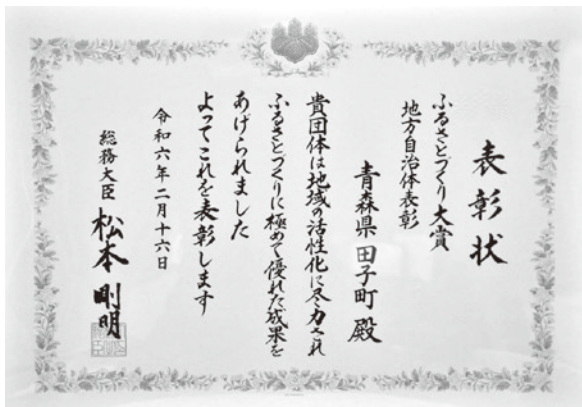 表彰状
ふるさとづくり大賞
地方自治体表彰
青森県田子町殿
貴団体は地域の活性化に尽力され
ふるさとづくりに極めて優れた成果を
あげられました
よってこれを表彰します
令和六年二月十六日
総務大臣 松本剛明